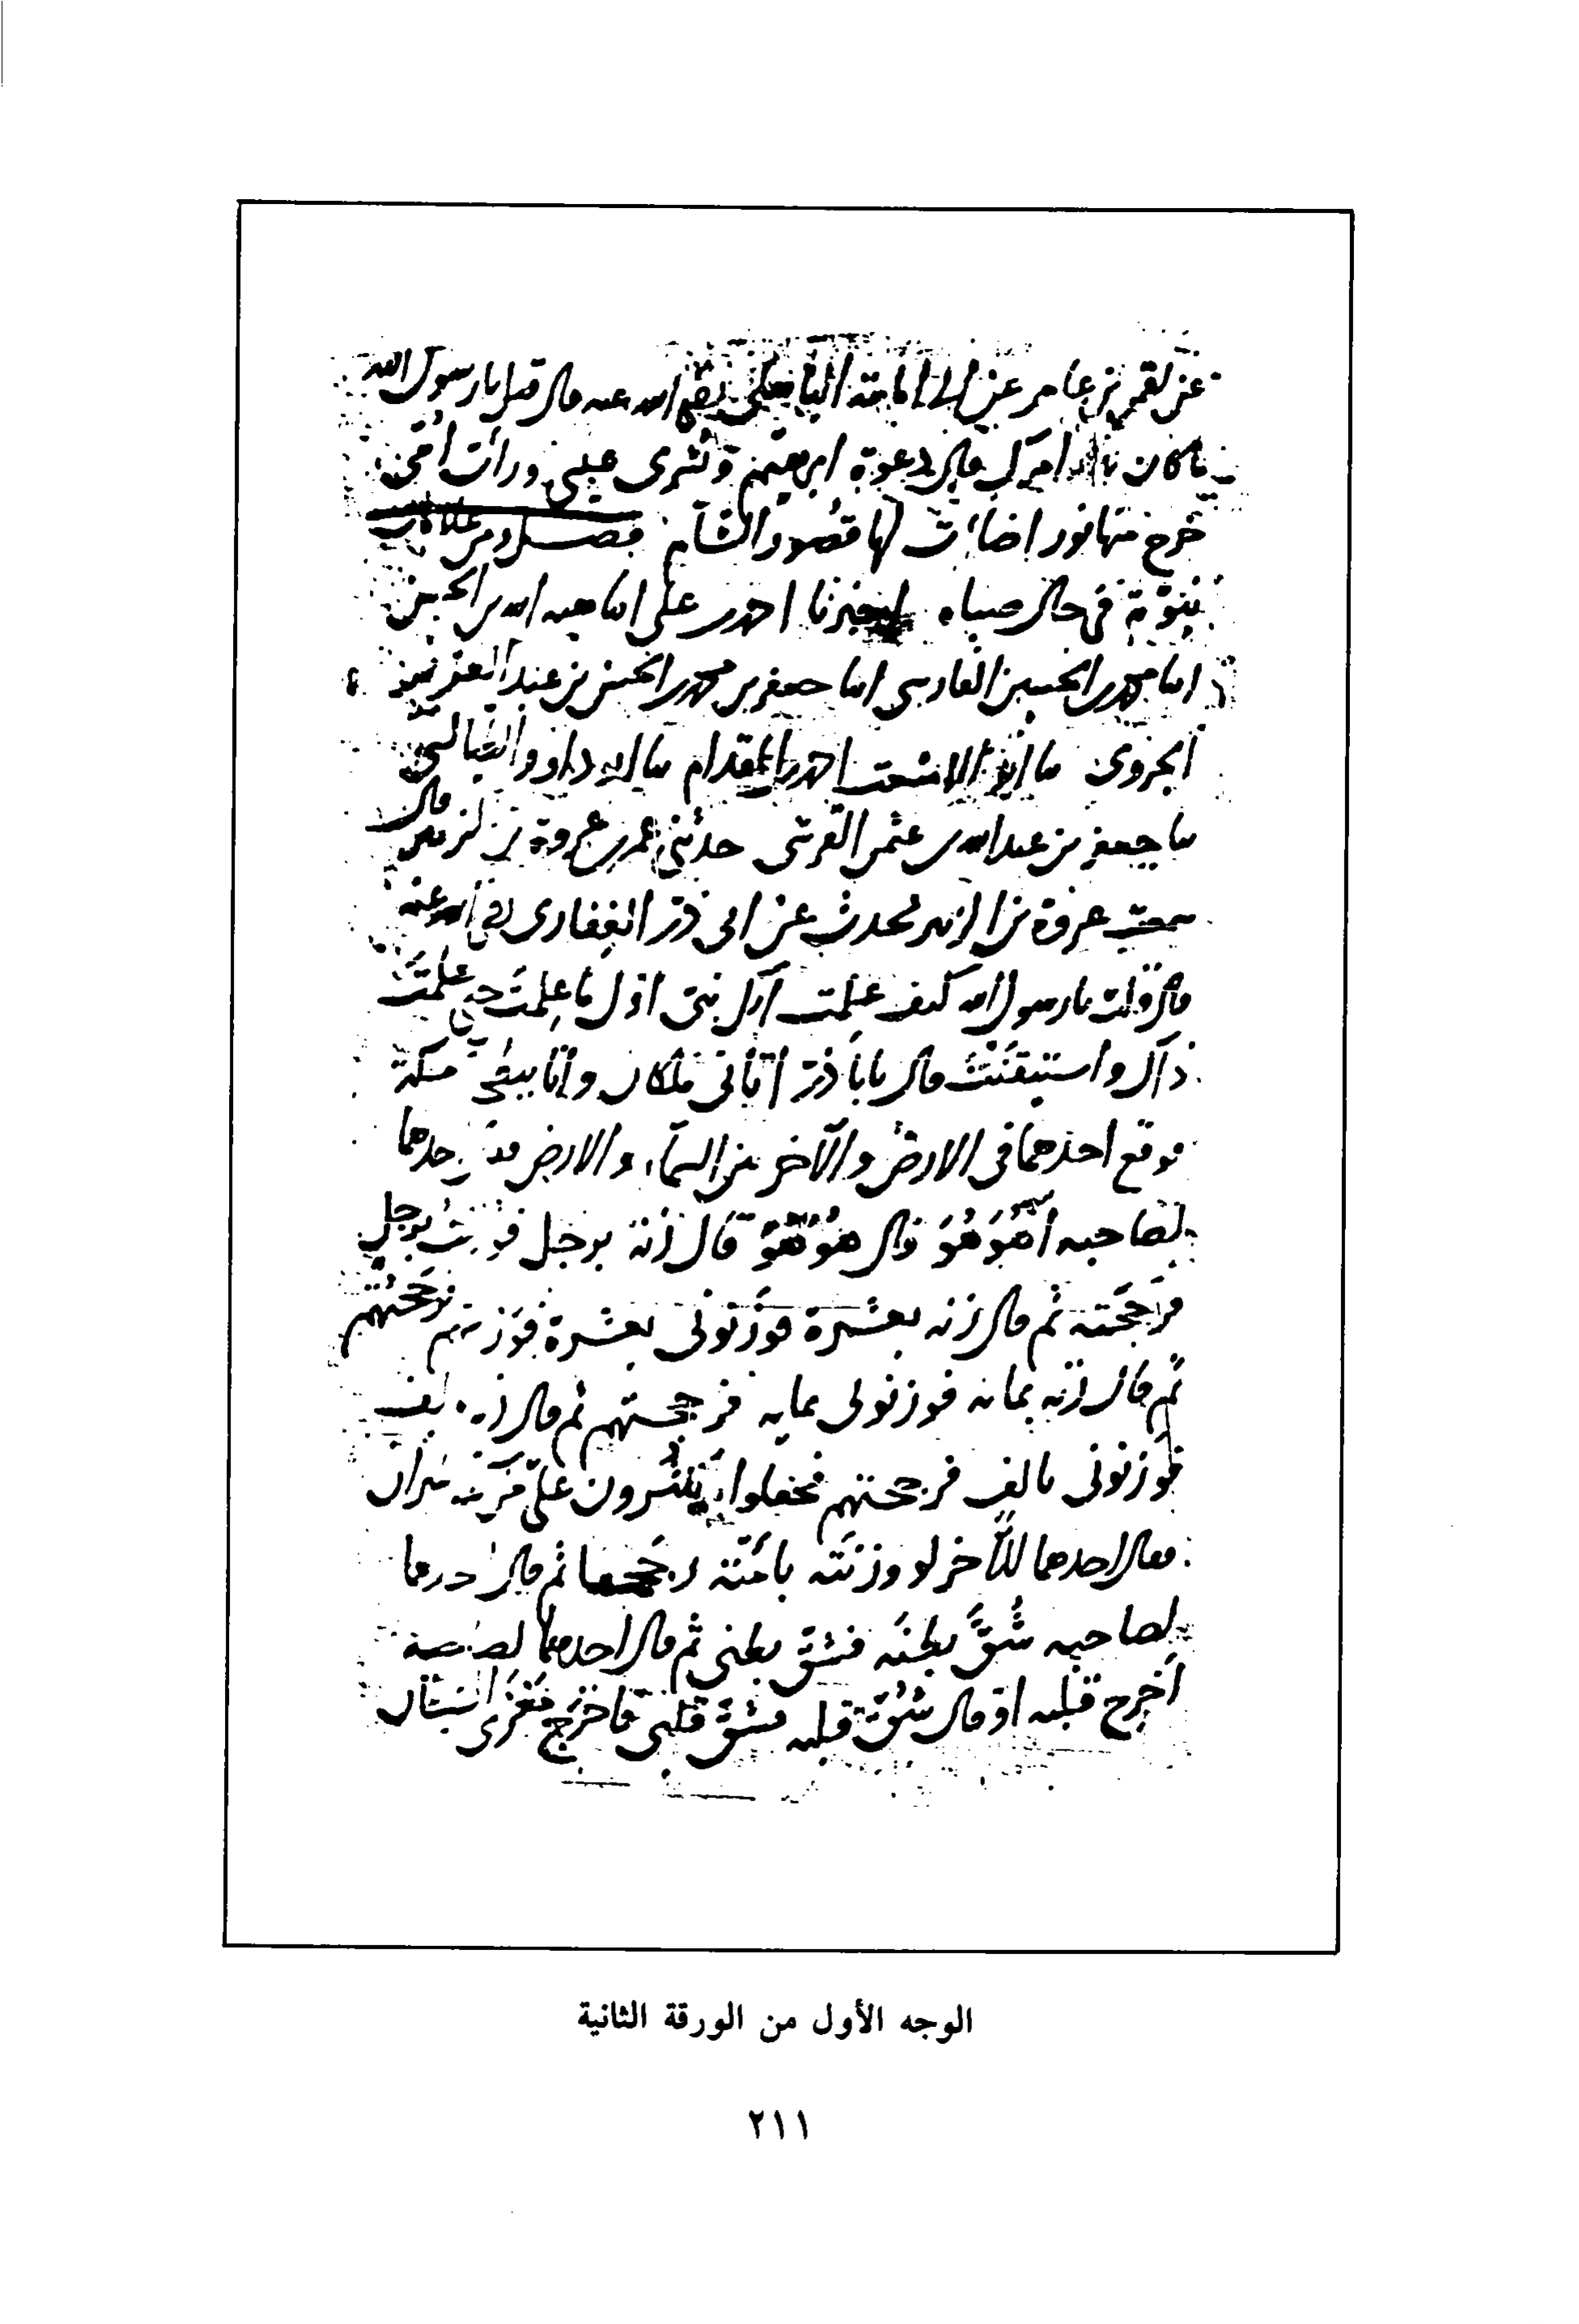 عن لقمن بن عامر عن ابى امامة الباهلى رضى الله عنه قال قيل يا رسول الله
ما كان بدء امرك قال دعوة ابرهيم وبشرى عيسى ورأت امى
خرج منها نور اضاءت لها قصور الشآم فصل ومن علامات
نبوّته فى حال صباه اخبرنا احمد بن على انا هبة الله بن الحسن
انا محمد بن الحسين الفارسى انا جعفر بن محمد بن الحسن بن عبد العزيز
الجروى نا ابو الاشعث احمد بن المقدام نا ابو داوود الطيالسى
نا جعفر بن عبد الله بن عثمن القرشى حدثنى عمر بن عروة بن الزبير قال
سمعت عروة بن الزبير يحدث عن ابى ذر الغفارى رضى الله عنه
قال قلت يا رسول الله كيف علمت انك نبى اول ما علمت حتى علمت
ذلك واستيقنت قال يا باذر اتانى ملكان وانا ببطحاء مكة
فوقع احدهما فى الارض والآخر بين السماء والارض فقال احدهما
لصاحبه أهُوَ هُوَ قال هُوَ هُوَ قال زنه برجل فوزنت برجل
فرجحته ثم قال زنه بعشرة فوزنونى بعشرة فوزنتهم فرجحتهم
ثم قال زنه بمائة فوزنونى بمائة فرجحتهم ثم قال زنه بألف
فوزنونى بالف فرجحتهم فجعلوا ينتثرون علىّ من كفة الميزان
فقال احدهما للآخر لو وزنته بامته رجحها ثم قال احدهما
لصاحبه شُقَّ بطنه فشق بطنى ثم قال احدهما لصاحبه
أخرج قلبه او قال شُقَّ قلبه فشق قلبى فاخرج مغمز الشيطان
الوجه الأول من الورقة الثانية
٢١١